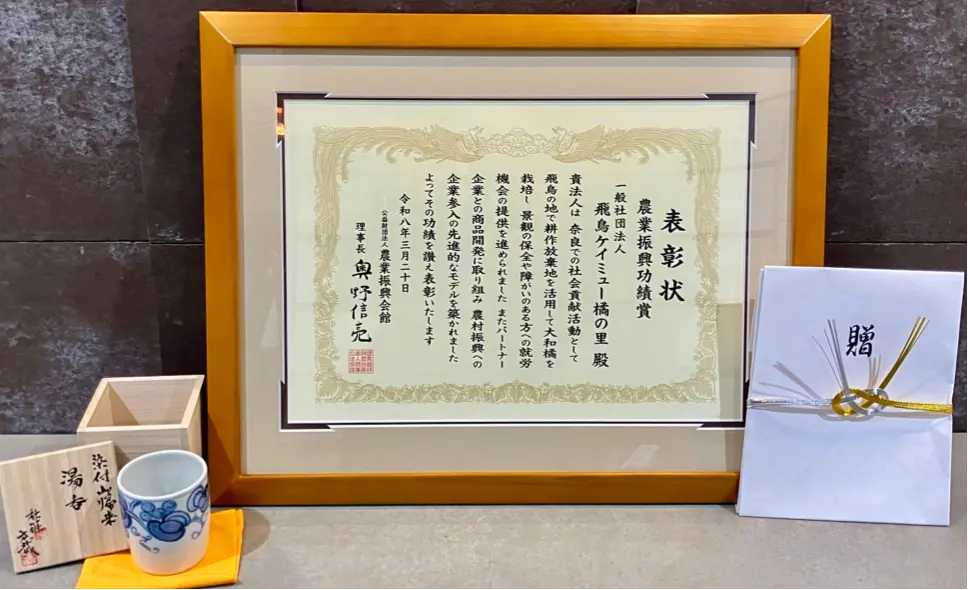 表彰状
農業振興功績賞
一般社団法人
飛鳥ケイミュー橘の里 殿
貴法人は 奈良での社会貢献活動として
飛鳥の地で耕作放棄地を活用して大和橘を
栽培し 景観の保全や障がいのある方への就労
機会の提供を進められました またパートナー
企業との商品開発に取り組み 農村振興への
企業参入の先進的なモデルを築かれました
よってその功績を讃え表彰いたします
令和八年三月二十日
公益財団法人 農業振興会館
理事長 奥野信亮
贈
染付山帰来
湯呑